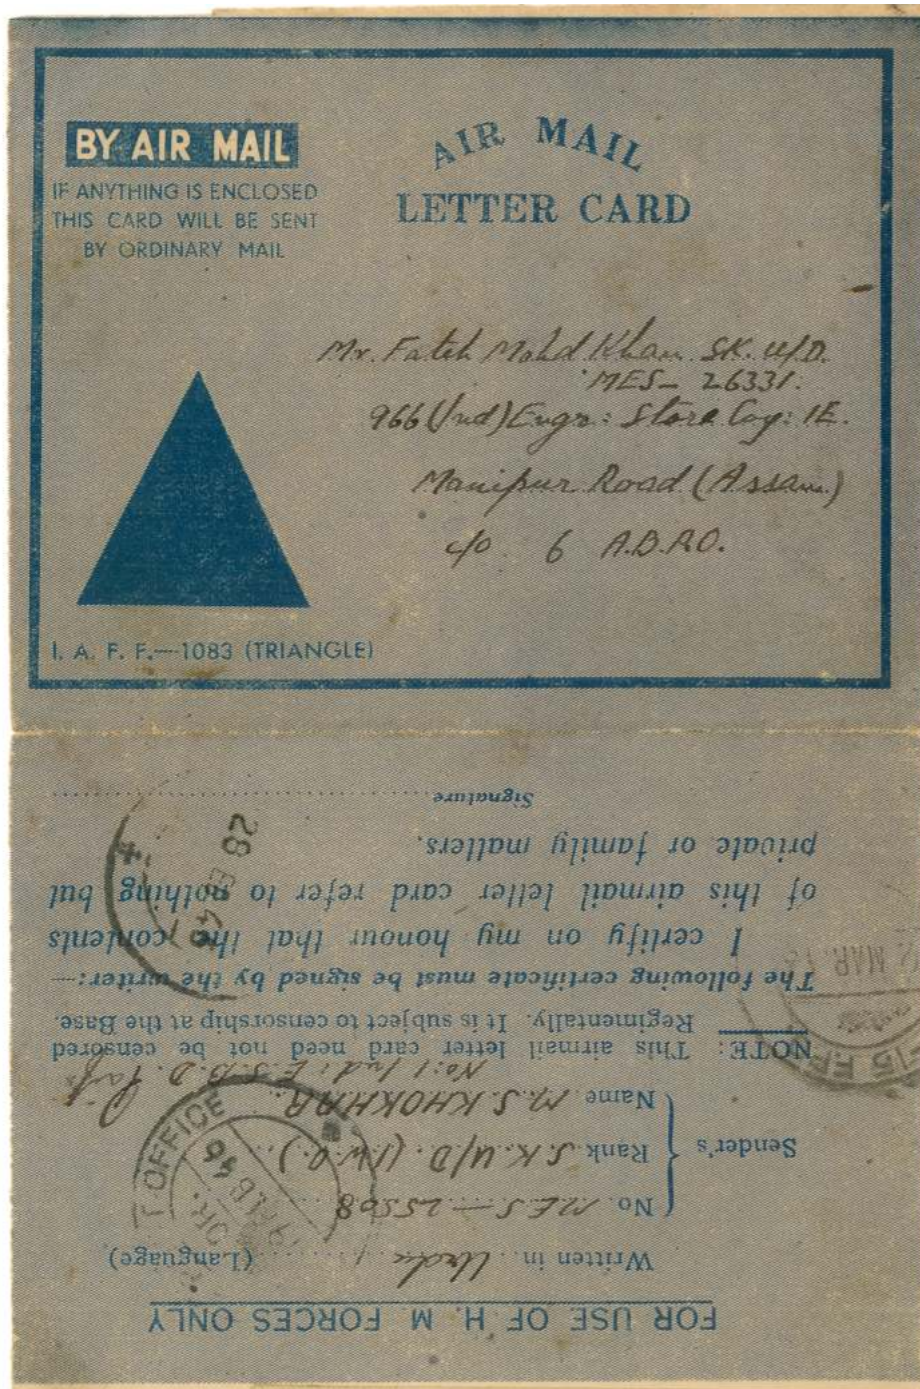 BY AIR MAIL
IF ANYTHING IS ENCLOSED
THIS CARD WILL BE SENT
BY ORDINARY MAIL
AIR MAIL
LETTER CARD
Mr. Fateh Mohd Khan. SK. U/D.
MES- 26331.
966 (Ind) Engr: Store Coy: IE.
Manipur Road (Assam)
c/o 6 A.B.P.O.
I. A. F. F.—1083 (TRIANGLE)
FOR USE OF H. M FORCES ONLY
Written in Urdu (Language)
Sender's
No. MES—25508
Rank S.K. U/D. (I.W.O.)
Name M.S. KHOKHAR
No: 1 Ind: E.S.B.D.
NOTE: This airmail letter card need not be censored
Regimentally. It is subject to censorship at the Base.
The following certificate must be signed by the writer:—
I certify on my honour that the contents
of this airmail letter card refer to nothing but
private or family matters.
Signature
OFFICE
28 FE
MAR.